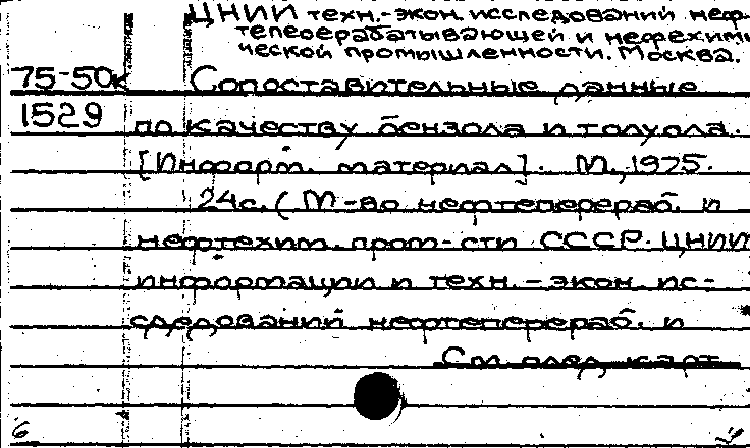 ЦНИИ техн.-экон. исследований неф
теперерабатывающей и нефехими
ческой промышленности. Москва.
75-50к Сопоставительные данные
1529 по качеству бензола и толуола.
[Информ. материал]. М., 1975.
24с. (М-во нефтеперераб. и
нефтехим. пром-сти СССР. ЦНИИ
информации и техн.-экон. ис-
следований нефтеперераб. и
См. след. карт.
6